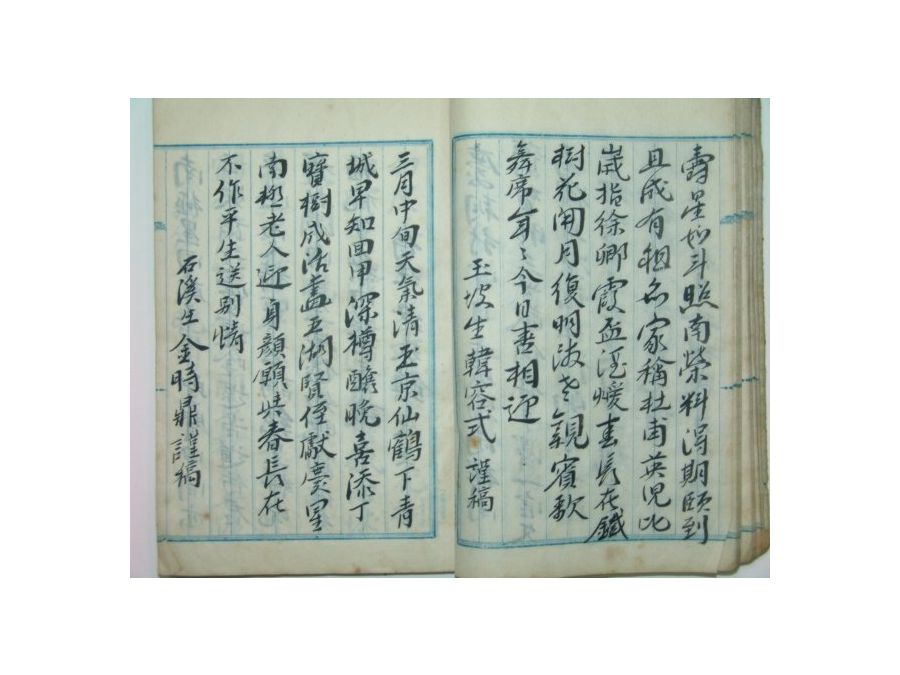 壽星如斗照南榮料得期頤到
且成有祖名家稱杜甫英兒比
歲指徐卿霞盃淫煖春長在鐵
樹花開月復明海老親賓歌
舞席年〻今日喜相迎
玉坡生韓容式謹稿
三月中旬天氣清玉京仙鶴下青
城早知回甲深樽醮晩喜添丁
寶樹成活畵五湖賢侄獻慶星
南極老人迎身顔願共春長在
不作平生送别情
石溪生金時鼎謹稿